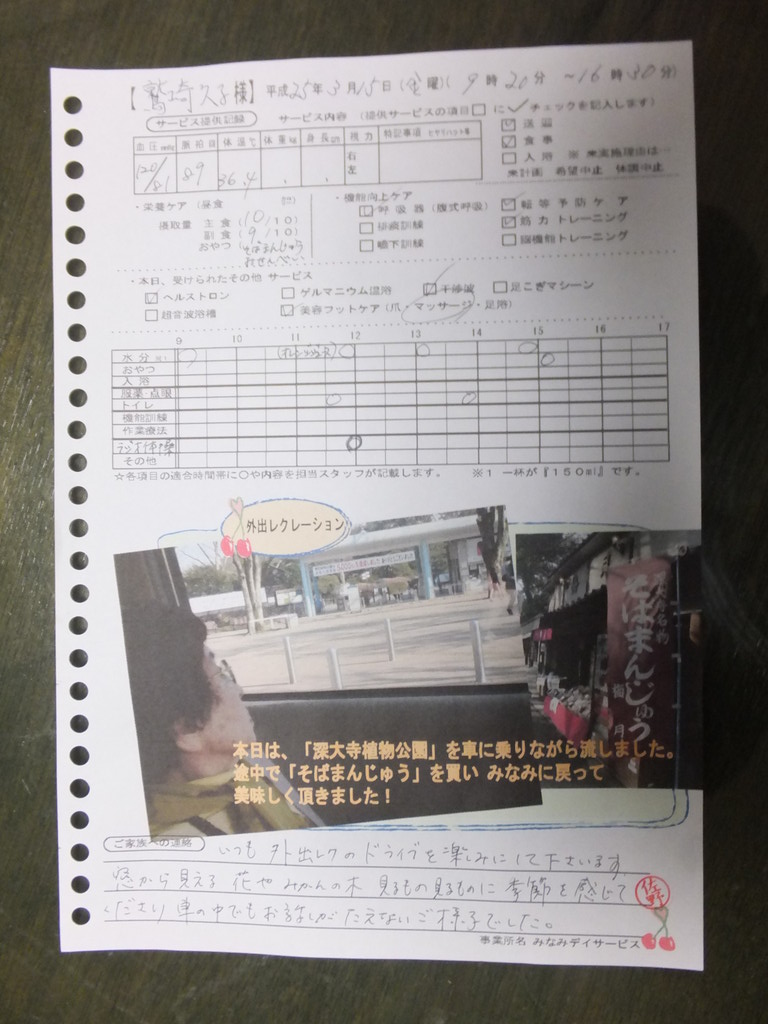 【鷲崎久子様】 平成25年3月15日(金曜)( 9時20分 ~16時30分)
サービス提供記録 サービス内容 (提供サービスの項目□に✓チェックを記入します)
血圧 脈拍 体温℃ 体重kg 身長cm 視力 特記事項
120/81 89 36.4 右 左
☑送迎
☑食事
□入浴 ※未実施理由は…
未計画 希望中止 体調中止
・栄養ケア (昼食
摂取量 主食 (10/10)
副食 (9/10)
おやつ (そばまんじゅう
おせんべい
・機能向上ケア
□呼吸器 (腹式呼吸) ☑転等予防ケア
□排痰訓練 ☑筋力トレーニング
□嚥下訓練 □脳機能トレーニング
・本日、受けられたその他サービス
☑ヘルストロン □ゲルマニウム温浴 ☑干渉波 □足こぎマシーン
□超音波浴槽 ☑美容フットケア (爪・マッサージ・足浴)
9 10 11 12 13 14 15 16 17
水分
おやつ
入浴
服薬・点眼
トイレ
機能訓練
作業療法
ラジオ体操
その他
☆各項目の適合時間帯に〇や内容を担当スタッフが記載します。 ※1 一杯が『150ml』です。
外出レクレーション
そばまんじゅう
本日は、「深大寺植物公園」を車に乗りながら流しました。
途中で「そばまんじゅう」を買い みなみに戻って
美味しく頂きました!
ご家族への連絡 いつも外出レクのドライブを楽しみにして下さいます
窓から見える 花や みかんの木 見るもの見るものに 季節を感じて
ください 車の中でもお話しがたえないご様子でした。
佐野
事業所名 みなみデイサービス